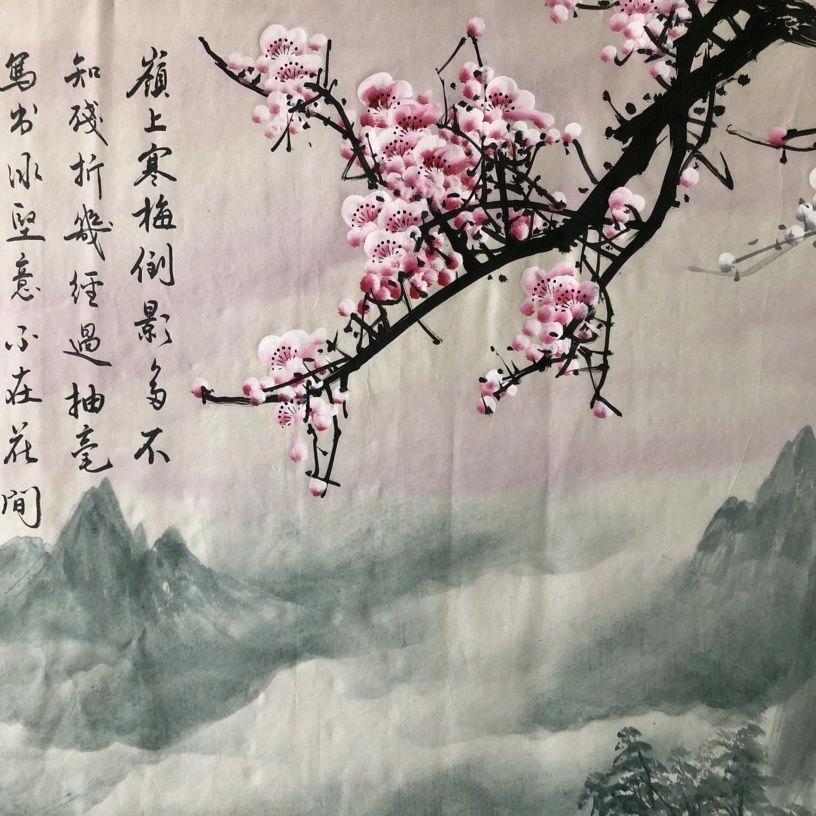 嶺上寒梅倒影多不
知殘折幾經過抽毫
寫出冰堅意不在花間